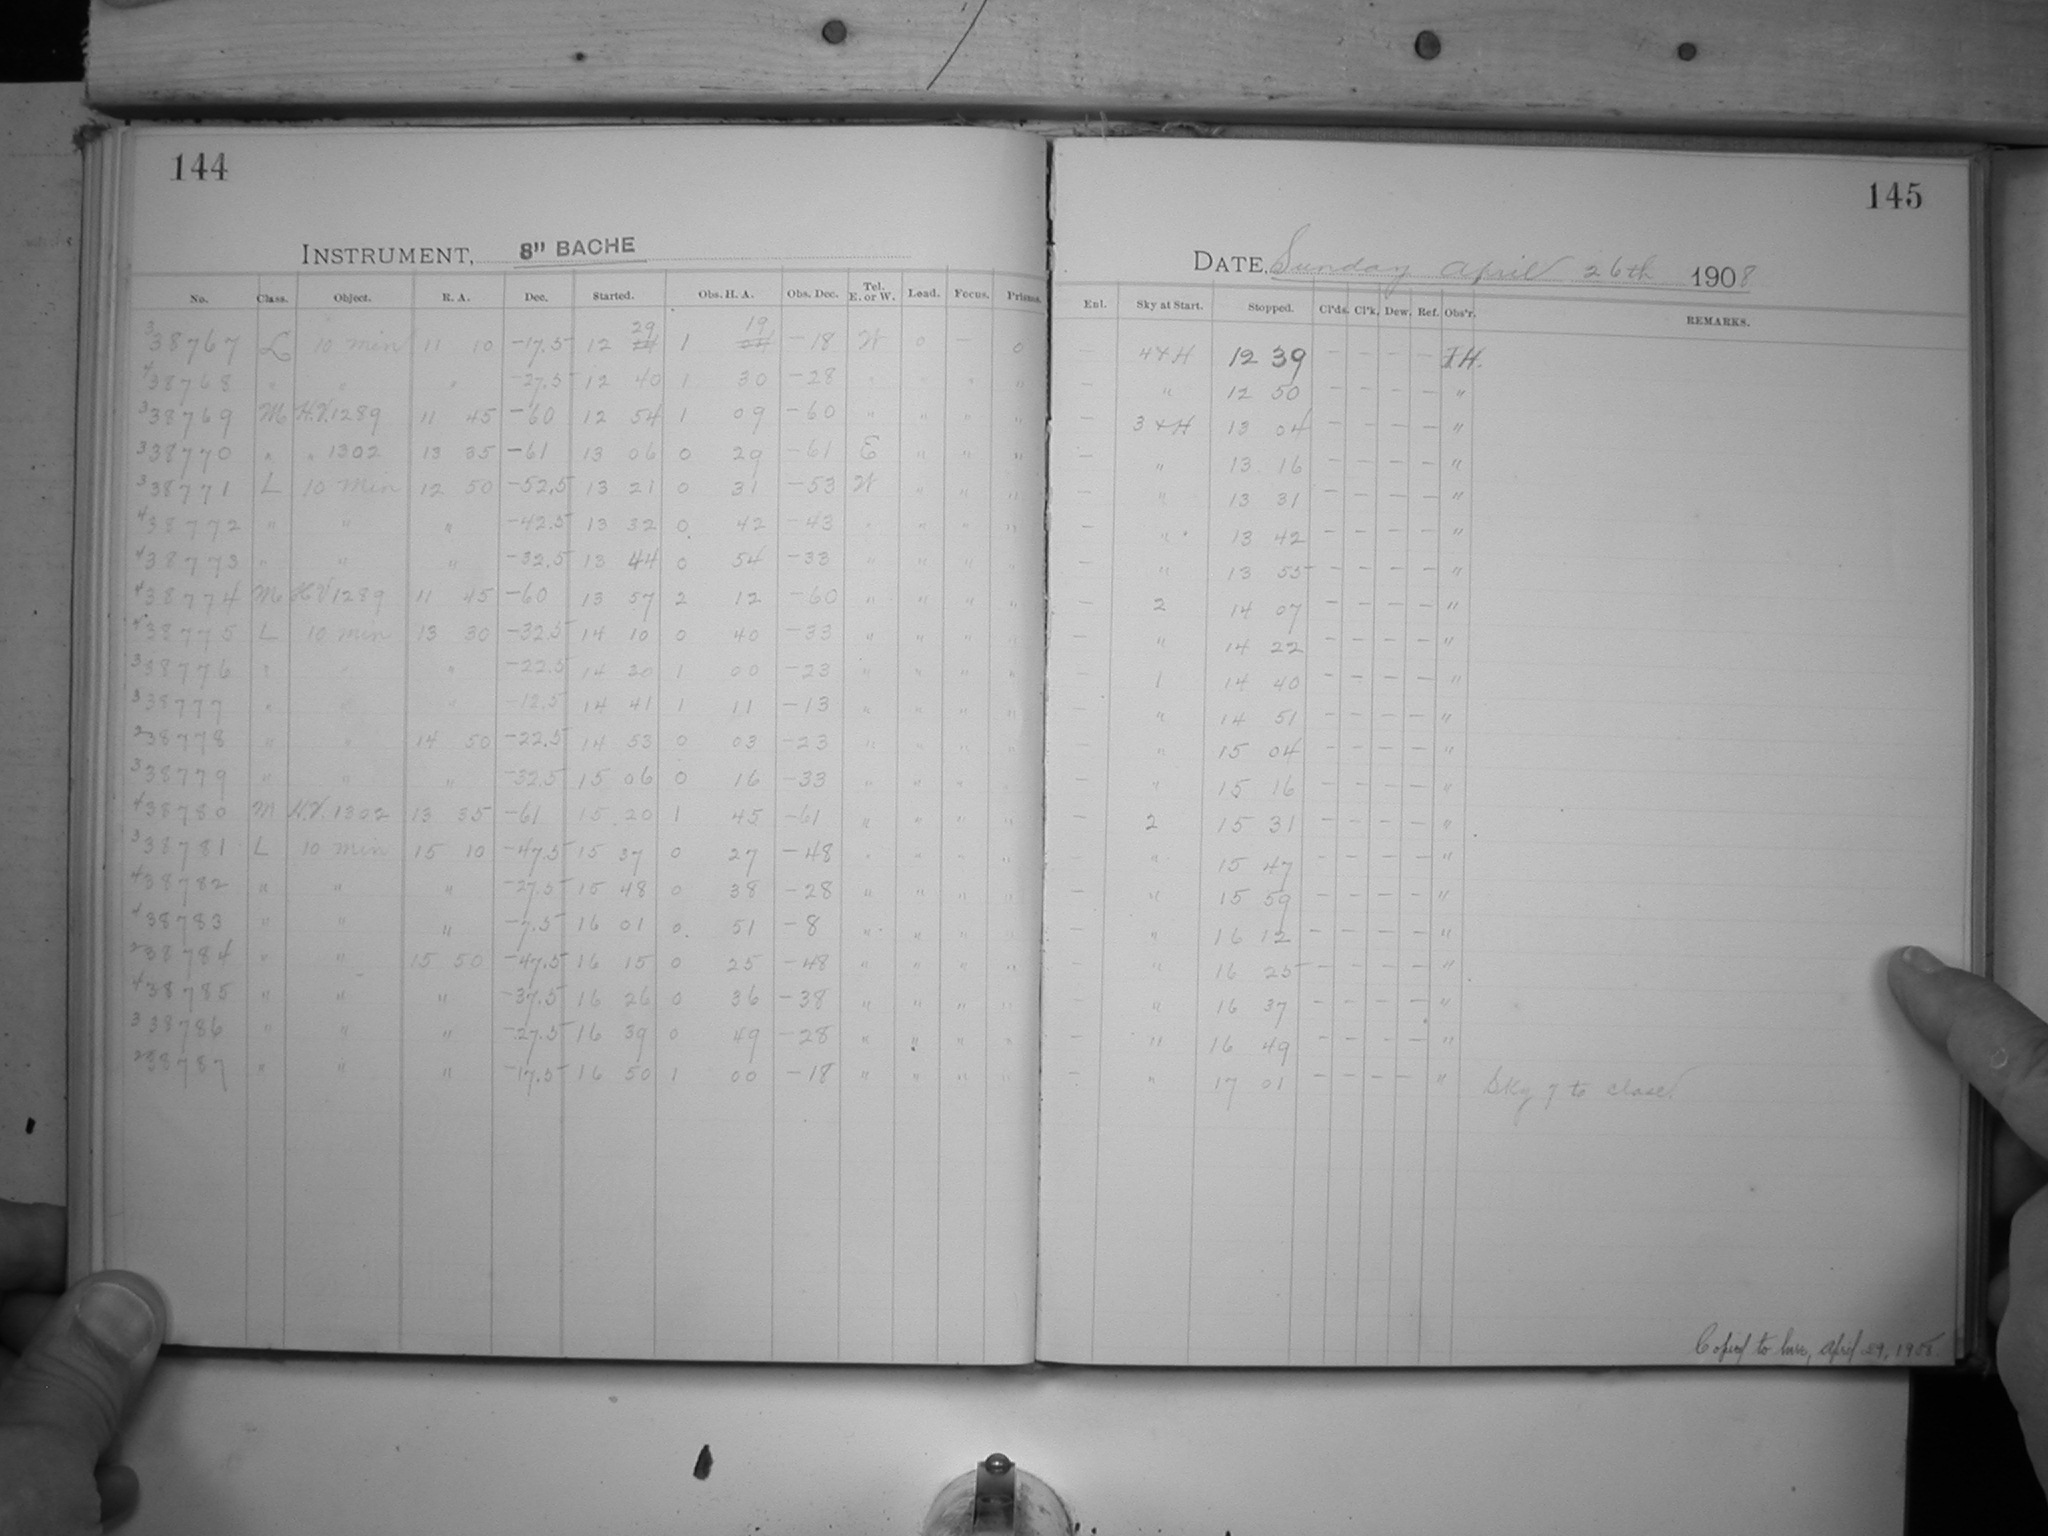 144
INSTRUMENT, 8" BACHE
No. Class. Object. R. A. Dec. Started. Obs. H. A. Obs. Dec. Tel. E. or W. Load. Focus. Prisms.
29 19
3 38767 L 10 min 11 10 -17.5 12 1 -18 W 0 - 0
4 38768 " " " -27.5 12 40 1 30 -28 " " " "
3 38769 M H.V. 1289 11 45 -60 12 54 1 09 -60 " " " "
3 38770 " " 1302 13 35 -61 13 06 0 29 -61 E " " "
3 38771 L 10 Min 12 50 -52.5 13 21 0 31 -53 W " " "
4 38772 " " " -42.5 13 32 0 42 -43 " " " "
4 38773 " " " -32.5 13 44 0 54 -33 " " " "
4 38774 M H.V. 1289 11 45 -60 13 57 2 12 -60 " " " "
38775 L 10 min 13 30 -32.5 14 10 0 40 -33 " " " "
3 38776 " " " -22.5 14 30 1 00 -23 " " " "
3 38777 " " " -12.5 14 41 1 11 -13 " " " "
2 38778 " " 14 50 -22.5 14 53 0 03 -23 " " " "
3 38779 " " " -32.5 15 06 0 16 -33 " " " "
4 38780 M H.V. 1302 13 35 -61 15 20 1 45 -61 " " " "
3 38781 L 10 min 15 10 -47.5 15 37 0 27 -48 " " " "
4 38782 " " " -27.5 15 48 0 38 -28 " " " "
4 38783 " " " -7.5 16 01 0 51 -8 " " " "
2 38784 " " 15 50 -47.5 16 15 0 25 -48 " " " "
4 38785 " " " -37.5 16 26 0 36 -38 " " " "
3 38786 " " " -27.5 16 39 0 49 -28 " " " "
2 38787 " " " -17.5 16 50 1 00 -18 " " " "
145
DATE, Sunday April 26th 1908
Enl. Sky at Start. Stopped. Cl'ds. Cl'k. Dew. Ref. Obs'r. REMARKS.
- 4 + H 12 39 - - - - I H.
- " 12 50 - - - - "
- 3 + H 13 04 - - - - "
- " 13 16 - - - - "
- " 13 31 - - - - "
- " 13 42 - - - - "
- " 13 55 - - - - "
- 2 14 07 - - - - "
- " 14 22 - - - - "
- 1 14 40 - - - - "
- " 14 51 - - - - "
- " 15 04 - - - - "
- " 15 16 - - - - "
- 2 15 31 - - - - "
- " 15 47 - - - - "
- " 15 59 - - - - "
- " 16 12 - - - - "
- " 16 25 - - - - "
- " 16 37 - - - - "
- " 16 49 - - - - "
- " 17 01 - - - - " Sky 7 to close.
Copied to here, April 29, 1908